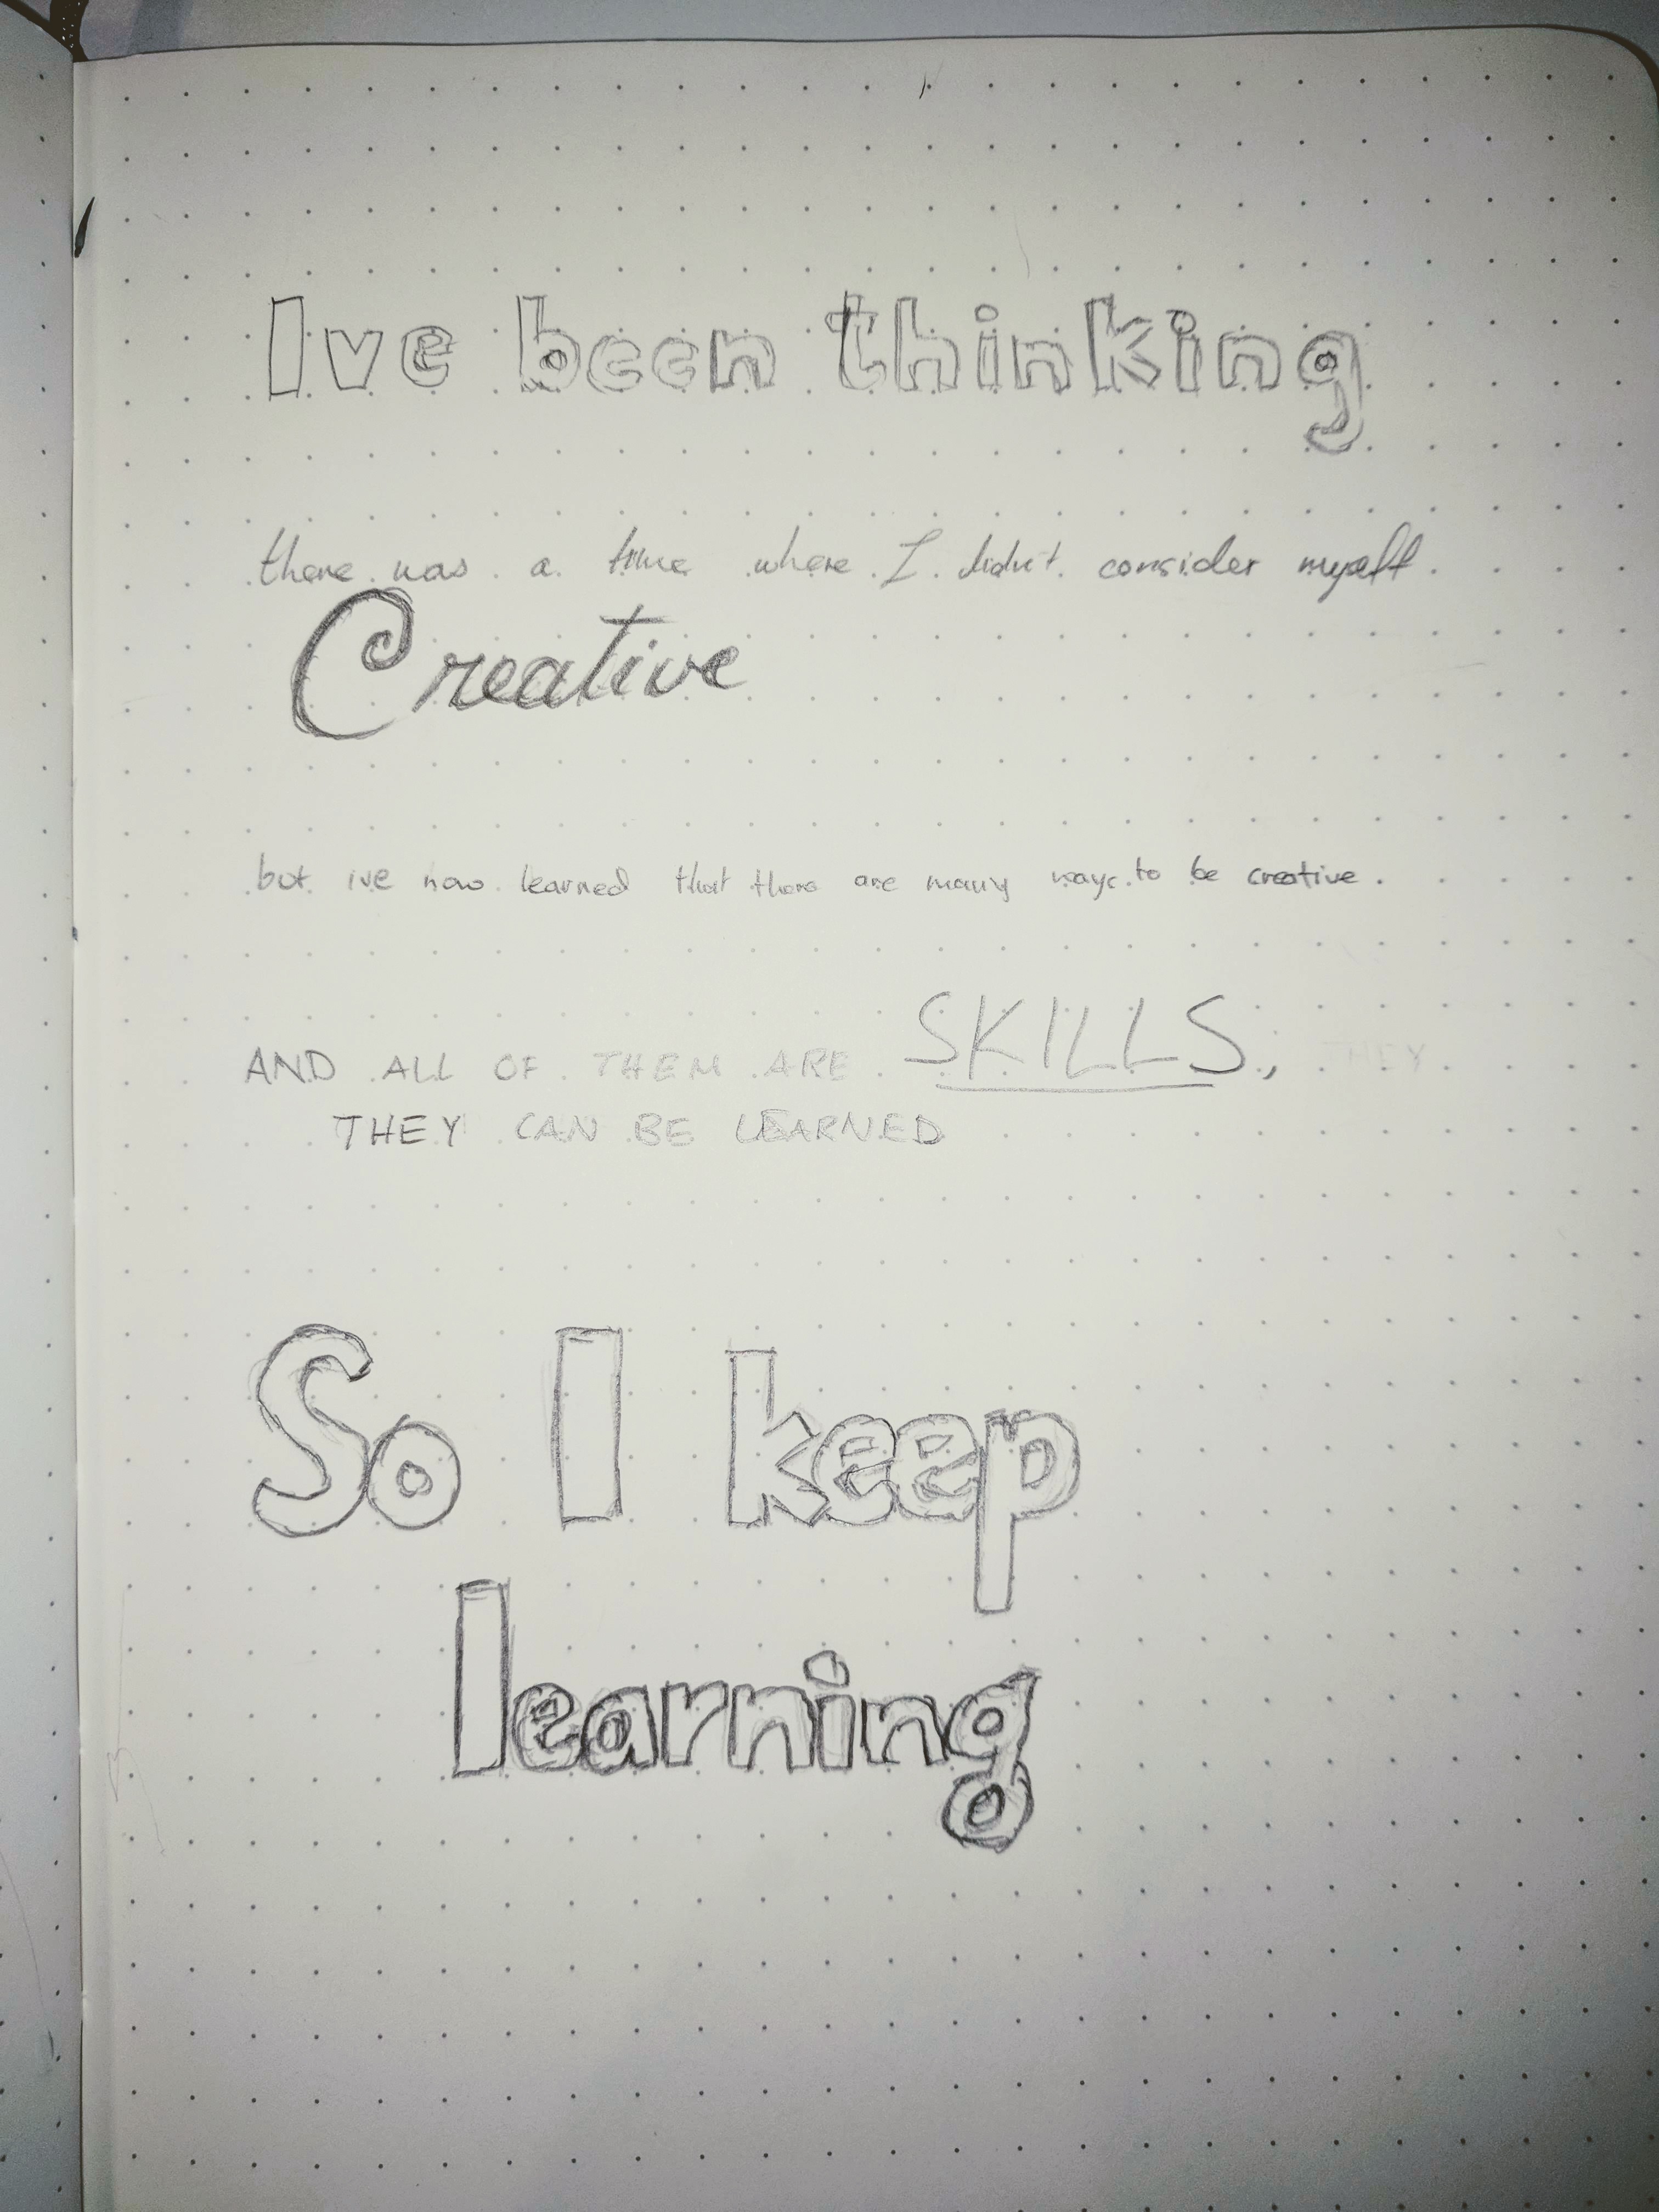 Ive been thinking
there was a time where I didn't consider myself
Creative
but ive now learned that there are many ways to be creative.
AND ALL OF THEM ARE SKILLS, THEY
THEY CAN BE LEARNED
So I keep
learning